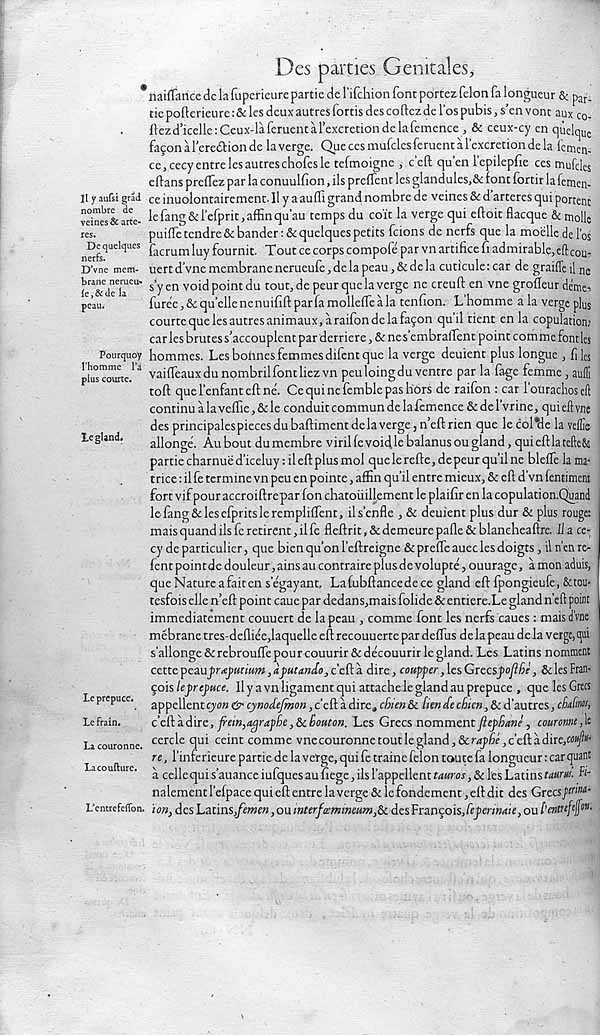 Des parties Genitales,
naiſſance de la ſuperieure partie de l'iſchion ſont portez ſelon ſa longueur & par-
tie poſterieure : & les deux autres ſortis des coſtez de l'os pubis, s'en vont aux co-
ſtez d'icelle : Ceux-là ſeruent à l'excretion de la ſemence, & ceux-cy en quelque
façon à l'erection de la verge. Que ces muſcles ſeruent à l'excretion de la ſemen-
ce, cecy entre les autres choſes le teſmoigne, c'eſt qu'en l'epilepſie ces muſcles
eſtans preſſez par la conuulſion, ils preſſent les glandules, & font ſortir la ſemen-
Il y auſsi grãd
ce inuolontairement. Il y a auſſi grand nombre de veines & d'arteres qui portent
nombre de
veines & arte-
le ſang & l'eſprit, affin qu'au temps du coït la verge qui eſtoit flacque & molle
res.
puiſſe tendre & bander : & quelques petits ſcions de nerfs que la moëlle de l'os
De quelques
nerfs.
ſacrum luy fournit. Tout ce corps compoſé par vn artifice ſi admirable, eſt cou-
D'vne mem-
uert d'vne membrane nerueuſe, de la peau, & de la cuticule : car de graiſſe il ne
brane nerueu-
ſe, & de la
s'y en void point du tout, de peur que la verge ne creuſt en vne groſſeur déme-
peau.
ſurée, & qu'elle ne nuiſiſt par ſa molleſſe à la tenſion. L'homme a la verge plus
courte que les autres animaux, à raiſon de la façon qu'il tient en la copulation:
car les brutes s'accouplent par derriere, & ne s'embraſſent point comme font les
Pourquoy
hommes. Les bonnes femmes diſent que la verge deuient plus longue, ſi les
l'homme l'a
vaiſſeaux du nombril ſont liez vn peu loing du ventre par la ſage femme, auſſi
plus courte.
toſt que l'enfant eſt né. Ce qui ne ſemble pas hors de raiſon : car l'ourachos eſt
continu à la veſſie, & le conduit commun de la ſemence & de l'vrine, qui eſt vne
des principales pieces du baſtiment de la verge, n'eſt rien que le col de la veſſie
Le gland.
allongé. Au bout du membre viril ſe void le balanus ou gland, qui eſt la teſte &
partie charnuë d'iceluy : il eſt plus mol que le reſte, de peur qu'il ne bleſſe la ma-
trice : il ſe termine vn peu en pointe, affin qu'il entre mieux, & eſt d'vn ſentiment
fort vif pour accroiſtre par ſon chatoüillement le plaiſir en la copulation. Quand
le ſang & les eſprits le rempliſſent, il s'enfle, & deuient plus dur & plus rouge:
mais quand ils ſe retirent, il ſe fleſtrit, & demeure paſle & blancheaſtre. Il a ce-
cy de particulier, que bien qu'on l'eſtreigne & preſſe auec les doigts, il n'en re-
ſent point de douleur, ains au contraire plus de volupté, ouurage, à mon aduis,
que Nature a fait en s'égayant. La ſubſtance de ce gland eſt ſpongieuſe, & tou-
tesfois elle n'eſt point caue par dedans, mais ſolide & entiere. Le gland n'eſt point
immediatement couuert de la peau, comme ſont les nerfs caues : mais d'vne
mébrane tres-deſliée, laquelle eſt recouuerte par deſſus de la peau de la verge, qui
s'allonge & rebrouſſe pour couurir & découurir le gland. Les Latins nomment
cette peau præputium, à putando, c'eſt à dire, coupper, les Grecs poſthé, & les Fran-
Le prepuce.
çois le prepuce. Il y a vn ligament qui attache le gland au prepuce, que les Grecs
appellent cyon & cynodeſmon, c'eſt à dire, chien & lien de chien, & d'autres, chalinos,
Le frain.
c'eſt à dire, frein, agraphe, & bouton. Les Grecs nomment ſtephané, couronne, le
La couronne.
cercle qui ceint comme vne couronne tout le gland, & raphé, c'eſt à dire, couſtu-
La couſture.
re, l'inferieure partie de la verge, qui ſe traine ſelon toute ſa longueur : car quant
à celle qui s'auance iuſques au ſiege, ils l'appellent tauros, & les Latins taurus. Fi-
nalement l'eſpace qui eſt entre la verge & le fondement, eſt dit des Grecs perinæ-
L'entrefeſſon.
ion, des Latins, femen, ou interfœmineum, & des François, le perinaie, ou l'entrefeſſon.